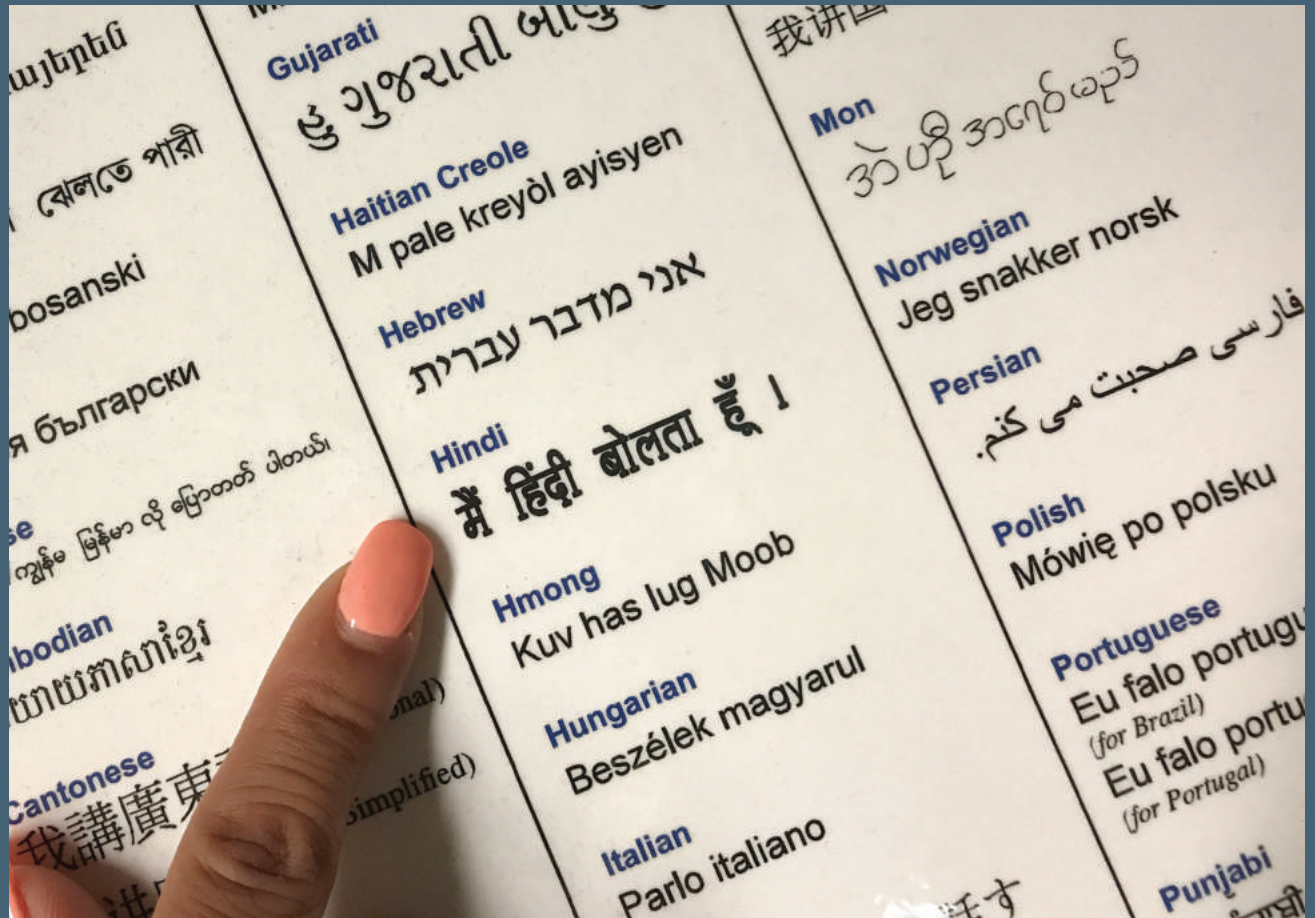 ঝেলতে পারী
bosanski
я български
ကျွန်မ မြန်မာ လို ပြောတတ် ပါတယ်၊
Cantonese
我講廣東
Simplified)
Gujarati
હું ગુજરાતી
Haitian Creole
M pale kreyòl ayisyen
Hebrew
אני מדבר עברית
Hindi
मैं हिंदी बोलता हूँ ।
Hmong
Kuv has lug Moob
Hungarian
Beszélek magyarul
Italian
Parlo italiano
我讲国
Mon
Norwegian
Jeg snakker norsk
Persian
فارسی صحبت می کنم.
Polish
Mówię po polsku
Portuguese
Eu falo portugu
(for Brazil)
Eu falo portu
(for Portugal)
Punjabi